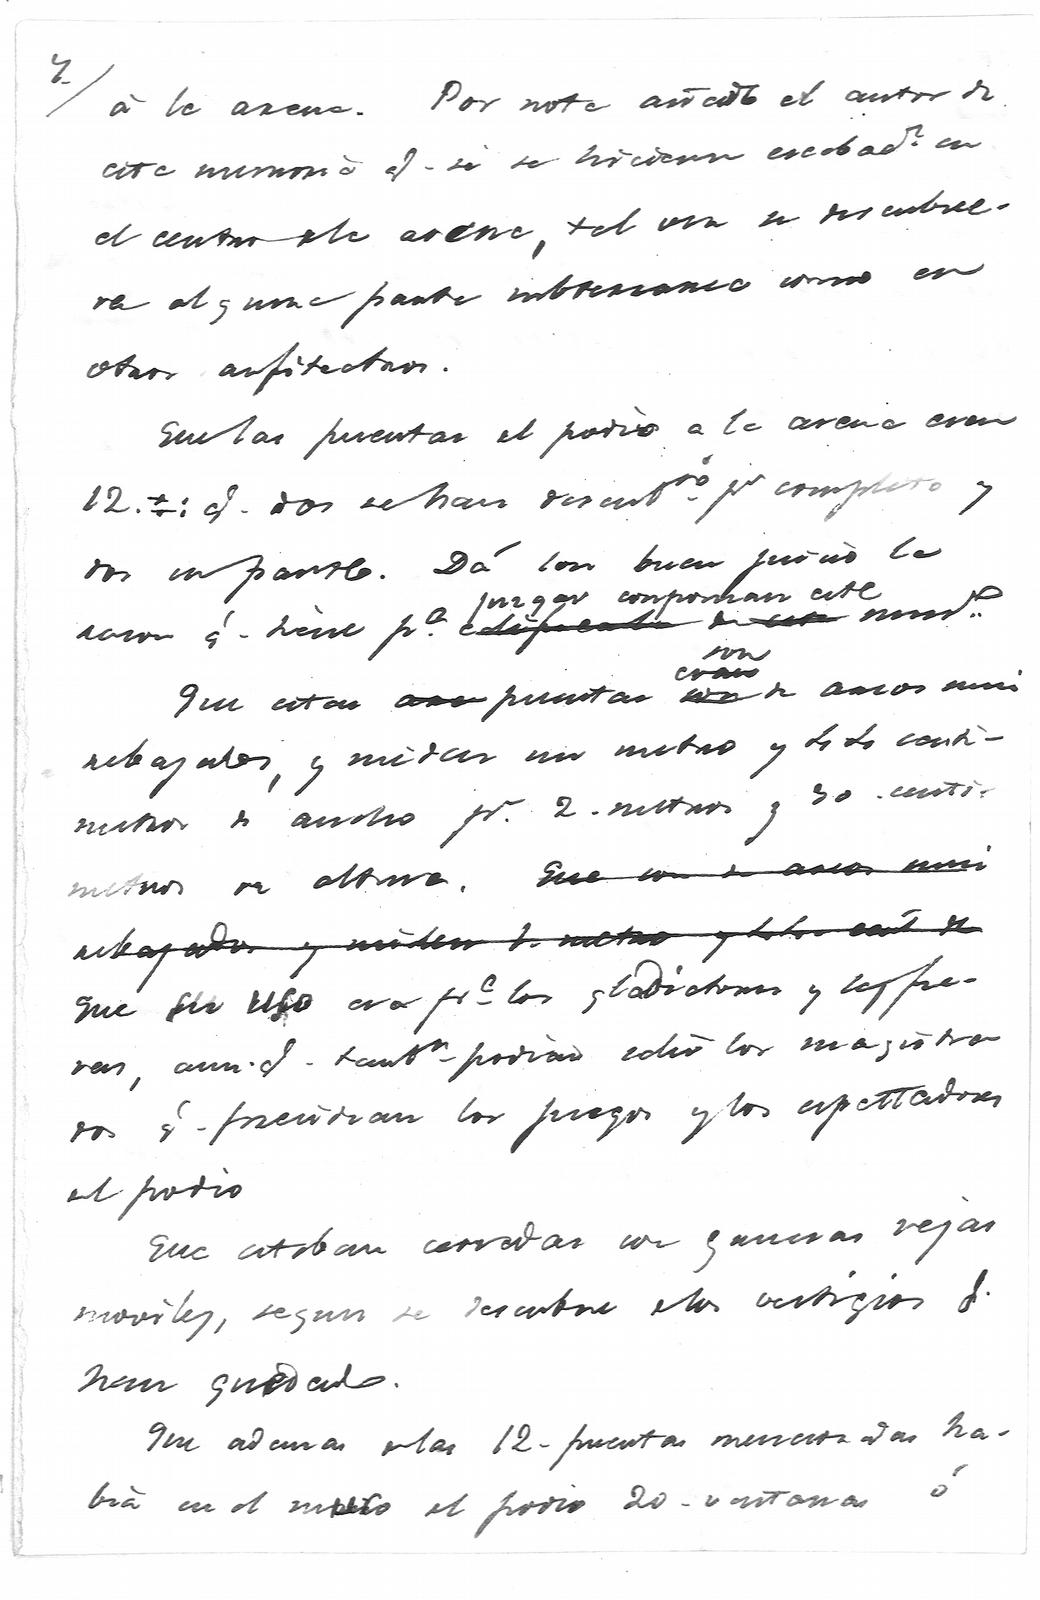 4/
à la arena. Por nota añade el autor de
esta memoria q.e si se hicieran escabac.s en
el centro dela arena, tal vez se descubrie-
ra alguna parte subterranea como en
otros anfiteatros.
Que las puertas del podio a la arena eran
12. q.e dos se han descub.to p.r completo y
dos en parte. Dá con buen juicio la
razon q.e tiene p.a juzgar componian este num.o
Que estas puertas son de arcos mui
rebajados, y miden un metro y centi-
metros de ancho p.r 2. metros y 30 centi-
metros de altura. Que son de arcos mui
rebajados y miden 1. metro y cent. de
Que su uso era p.a los gladiadores y las fie-
ras, aun q.e tamb.n podian los magistra
dos q.e presidian los juegos y los espettadores
del podio
Que estaban cerradas con gruesas rejas
moviles, segun se descubre delos vestigios q.e
han quedado.
Que ademas delas 12. puertas mencionadas ha-
bia en el muro del podio 20. ventanas ó